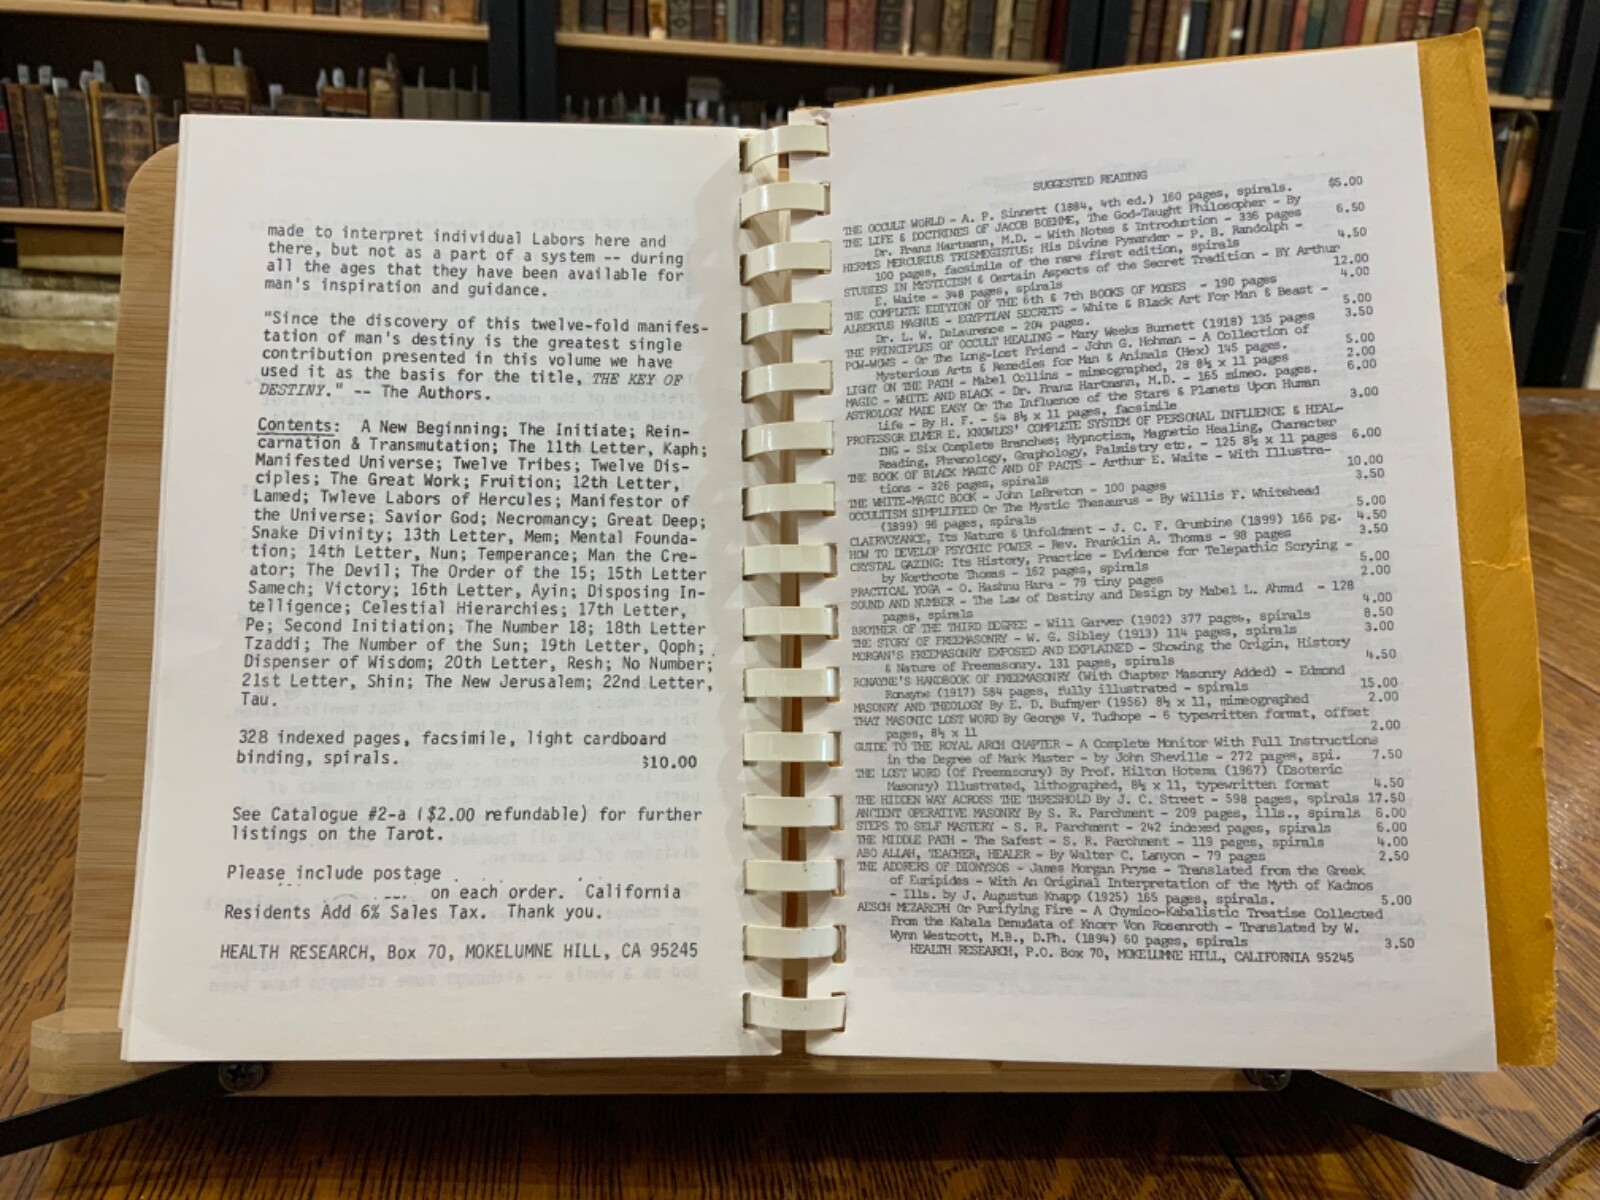 made to interpret individual Labors here and
there, but not as a part of a system -- during
all the ages that they have been available for
man's inspiration and guidance.
"Since the discovery of this twelve-fold manifes-
tation of man's destiny is the greatest single
contribution presented in this volume we have
used it as the basis for the title, THE KEY OF
DESTINY." -- The Authors.
Contents: A New Beginning; The Initiate; Rein-
carnation & Transmutation; The 11th Letter, Kaph;
Manifested Universe; Twelve Tribes; Twelve Dis-
ciples; The Great Work; Fruition; 12th Letter,
Lamed; Twleve Labors of Hercules; Manifestor of
the Universe; Savior God; Necromancy; Great Deep;
Snake Divinity; 13th Letter, Mem; Mental Founda-
tion; 14th Letter, Nun; Temperance; Man the Cre-
ator; The Devil; The Order of the 15; 15th Letter
Samech; Victory; 16th Letter, Ayin; Disposing In-
telligence; Celestial Hierarchies; 17th Letter,
Pe; Second Initiation; The Number 18; 18th Letter
Tzaddi; The Number of the Sun; 19th Letter, Qoph;
Dispenser of Wisdom; 20th Letter, Resh; No Number;
21st Letter, Shin; The New Jerusalem; 22nd Letter,
Tau.
328 indexed pages, facsimile, light cardboard
binding, spirals. $10.00
See Catalogue #2-a ($2.00 refundable) for further
listings on the Tarot.
Please include postage
on each order. California
Residents Add 6% Sales Tax. Thank you.
HEALTH RESEARCH, Box 70, MOKELUMNE HILL, CA 95245
SUGGESTED READING
THE OCCULT WORLD - A. P. Sinnett (1884, 4th ed.) 160 pages, spirals. $5.00
THE LIFE & DOCTRINES OF JACOB BOEHME, The God-Taught Philosopher - By
Dr. Franz Hartmann, M.D. - With Notes & Introduction - 336 pages 6.50
HERMES MERCURIUS TRISMEGISTUS: His Divine Pymander - P. B. Randolph -
100 pages, facsimile of the rare first edition, spirals 4.50
STUDIES IN MYSTICISM & Certain Aspects of the Secret Tradition - BY Arthur
E. Waite - 348 pages, spirals 12.00
THE COMPLETE EDIYION OF THE 6th & 7th BOOKS OF MOSES - 190 pages 4.00
ALBERTUS MAGNUS - EGYPTIAN SECRETS - White & Black Art For Man & Beast -
Dr. L. W. DeLaurence - 204 pages. 5.00
THE PRINCIPLES OF OCCULT HEALING - Mary Weeks Burnett (1918) 135 pages 3.50
POW-WOWS - Or The Long-Lost Friend - John G. Hohman - A Collection of
Mysterious Arts & Remedies for Man & Animals (Hex) 145 pages. 5.00
LIGHT ON THE PATH - Mabel Collins - mimeographed, 28 8½ x 11 pages 2.00
MAGIC - WHITE AND BLACK - Dr. Franz Hartmann, M.D. - 165 mimeo. pages. 6.00
ASTROLOGY MADE EASY Or The Influence of the Stars & Planets Upon Human
Life - By H. F. - 54 8½ x 11 pages, facsimile 3.00
PROFESSOR ELMER E. KNOWLES' COMPLETE SYSTEM OF PERSONAL INFLUENCE & HEAL-
ING - Six Complete Branches; Hypnotism, Magnetic Healing, Character
Reading, Phrenology, Graphology, Palmistry etc. - 125 8½ x 11 pages 6.00
THE BOOK OF BLACK MAGIC AND OF PACTS - Arthur E. Waite - With Illustra-
tions - 326 pages, spirals 10.00
THE WHITE-MAGIC BOOK - John LeBreton - 100 pages 3.50
OCCULTISM SIMPLIFIED Or The Mystic Thesaurus - By Willis F. Whitehead
(1899) 96 pages, spirals 5.00
CLAIRVOYANCE, Its Nature & Unfoldment - J. C. F. Grumbine (1899) 166 pg. 4.50
HOW TO DEVELOP PSYCHIC POWER - Rev. Franklin A. Thomas - 98 pages 3.50
CRYSTAL GAZING: Its History, Practice - Evidence for Telepathic Scrying -
by Northcote Thomas - 162 pages, spirals 5.00
PRACTICAL YOGA - O. Hashnu Hara - 79 tiny pages 2.00
SOUND AND NUMBER - The Law of Destiny and Design by Mabel L. Ahmad - 128
pages, spirals 4.00
BROTHER OF THE THIRD DEGREE - Will Garver (1902) 377 pages, spirals 8.50
THE STORY OF FREEMASONRY - W. G. Sibley (1913) 114 pages, spirals 3.00
MORGAN'S FREEMASONRY EXPOSED AND EXPLAINED - Showing the Origin, History
& Nature of Freemasonry. 131 pages, spirals 4.50
RONAYNE'S HANDBOOK OF FREEMASONRY (With Chapter Masonry Added) - Edmond
Ronayne (1917) 584 pages, fully illustrated - spirals 15.00
MASONRY AND THEOLOGY By E. D. Bufmyer (1956) 8½ x 11, mimeographed 2.00
THAT MASONIC LOST WORD By George V. Tudhope - 6 typewritten format, offset
pages, 8½ x 11 2.00
GUIDE TO THE ROYAL ARCH CHAPTER - A Complete Monitor With Full Instructions
in the Degree of Mark Master - by John Sheville - 272 pages, spi. 7.50
THE LOST WORD (Of Freemasonry) By Prof. Hilton Hotema (1967) (Esoteric
Masonry) Illustrated, lithographed, 8½ x 11, typewritten format 4.50
THE HIDDEN WAY ACROSS THE THRESHOLD By J. C. Street - 598 pages, spirals 17.50
ANCIENT OPERATIVE MASONRY By S. R. Parchment - 209 pages, ills., spirals 6.00
STEPS TO SELF MASTERY - S. R. Parchment - 242 indexed pages, spirals 6.00
THE MIDDLE PATH - The Safest - S. R. Parchment - 119 pages, spirals 4.00
ABO ALLAH, TEACHER, HEALER - By Walter C. Lanyon - 79 pages 2.50
THE ADORERS OF DIONYSOS - James Morgan Pryse - Translated from the Greek
of Euripides - With An Original Interpretation of the Myth of Kadmos
- Ills. by J. Augustus Knapp (1925) 165 pages, spirals. 5.00
AESCH MEZAREPH Or Purifying Fire - A Chymico-Kabalistic Treatise Collected
From the Kabala Denudata of Knorr Von Rosenroth - Translated by W.
Wynn Westcott, M.B., D.Ph. (1894) 60 pages, spirals 3.50
HEALTH RESEARCH, P.O. Box 70, MOKELUMNE HILL, CALIFORNIA 95245